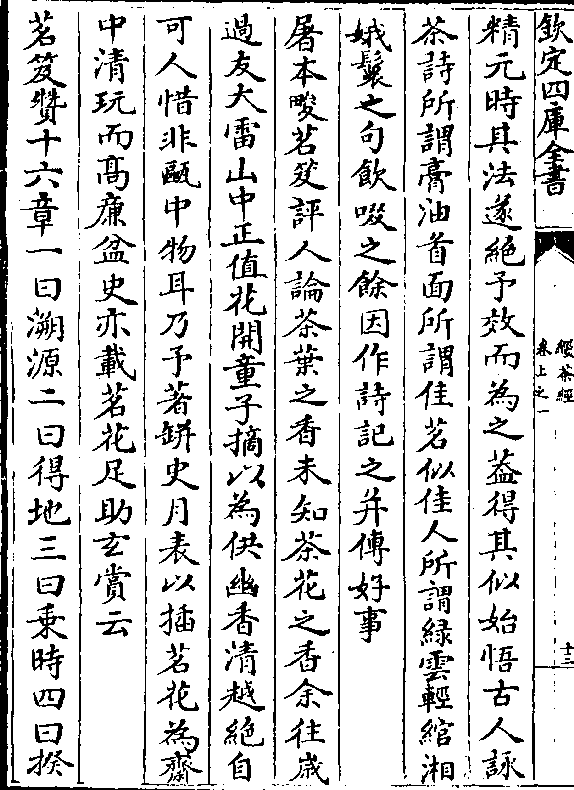 欽定四庫全書
續茶經
卷上之一
十三
精元時其法遂絕予效而為之葢得其似始悟古人詠
茶詩所謂膏油首面所謂佳茗似佳人所謂緑雲輕綰湘
娥鬟之句飲啜之餘因作詩記之并傳好事
屠本畯茗笈評人論茶葉之香未知茶花之香余往歲
過友大雷山中正值花開童子摘以為供幽香清越絕自
可人惜非甌中物耳乃予著缾史月表以插茗花為齋
中清玩而高㢘盆史亦載茗花足助玄賞云
茗笈贊十六章一曰溯源二曰得地三曰乗時四曰揆